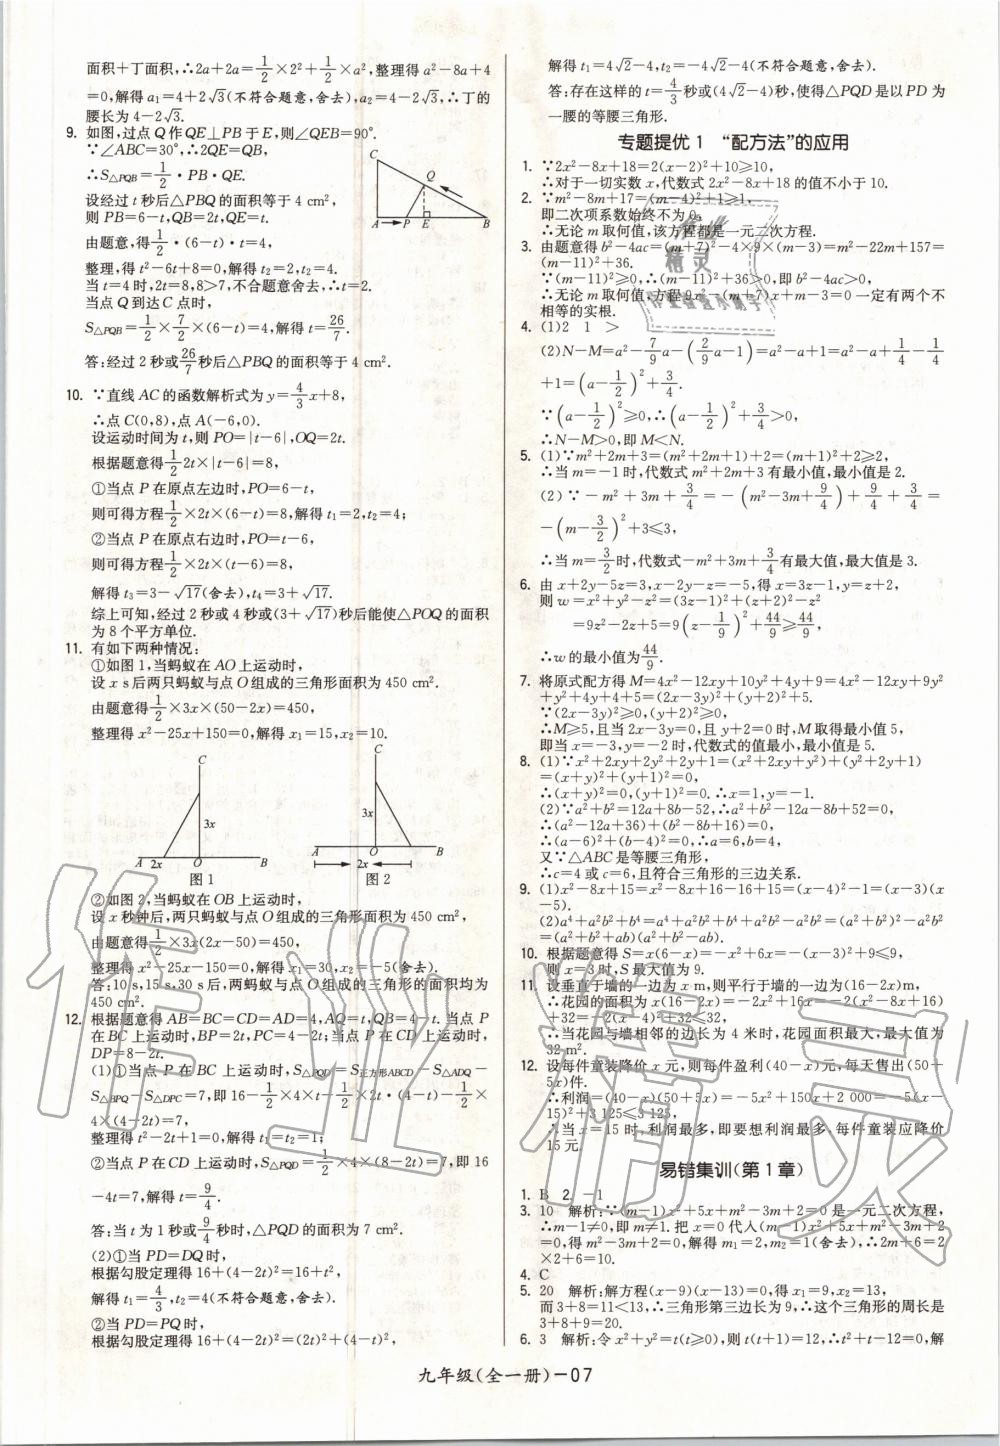 面积+丁面积,∴2a+2a=1/2×2²+1/2×a²,整理得 a²-8a+4
=0,解得 a₁=4+2√3(不符合题意,舍去),a₂=4-2√3,∴丁的
腰长为 4-2√3.
9. 如图,过点 Q 作 QE⊥PB 于 E,则∠QEB=90°.
∵∠ABC=30°,∴2QE=QB,
∴S△PQB=1/2·PB·QE.
设经过 t 秒后△PBQ 的面积等于 4 cm²,
则 PB=6-t,QB=2t,QE=t.
由题意,得1/2·(6-t)·t=4,
整理,得 t²-6t+8=0,解得 t₂=2,t₂=4.
当 t=4 时,2t=8,8>7,不合题意舍去,∴t=2.
当点 Q 到达 C 点时,
S△PQB=1/2×7/2×(6-t)=4,解得 t=26/7.
答:经过 2 秒或26/7秒后△PBQ 的面积等于 4 cm².
C
Q
A P E B
10. ∵直线 AC 的函数解析式为 y=4/3x+8,
∴点 C(0,8),点 A(-6,0).
设运动时间为 t,则 PO=|t-6|,OQ=2t.
根据题意得1/2 2t×|t-6|=8,
①当点 P 在原点左边时,PO=6-t,
则可得方程1/2×2t×(6-t)=8,解得 t₁=2,t₂=4;
②当点 P 在原点右边时,PO=t-6,
则可得方程1/2×2t×(t-6)=8,
解得 t₃=3-√17(舍去),t₄=3+√17.
综上可知,经过 2 秒或 4 秒或(3+√17)秒后能使△POQ 的面积
为 8 个平方单位.
11. 有如下两种情况:
①如图 1,当蚂蚁在 AO 上运动时,
设 x s 后两只蚂蚁与点 O 组成的三角形面积为 450 cm²,
由题意得1/2×3x×(50-2x)=450,
整理得 x²-25x+150=0,解得 x₁=15,x₂=10.
C
3x
A 2x O B
图 1
C
3x
A O B
2x
图 2
②如图 2,当蚂蚁在 OB 上运动时,
设 x 秒钟后,两只蚂蚁与点 O 组成的三角形面积为 450 cm²,
由题意得1/2×3x(2x-50)=450,
整理得 x²-25x-150=0,解得 x₁=30,x₂=-5(舍去).
答:10 s,15 s,30 s 后,两蚂蚁与点 O 组成的三角形的面积均为
450 cm².
12. 根据题意得 AB=BC=CD=AD=4,AQ=t,QB=4-t. 当点 P
在 BC 上运动时,BP=2t,PC=4-2t;当点 P 在 CD 上运动时,
DP=8-2t.
(1)①当点 P 在 BC 上运动时,S△PQD=S正方形ABCD-S△ADQ-
S△BPQ-S△DPC=7,即 16-1/2×4×t-1/2×2t·(4-t)-1/2×
4×(4-2t)=7,
整理得 t²-2t+1=0,解得 t₁=t₂=1;
②当点 P 在 CD 上运动时,S△PQD=1/2×4×(8-2t)=7,即 16
-4t=7,解得 t=9/4.
答:当 t 为 1 秒或9/4秒时,△PQD 的面积为 7 cm².
(2)①当 PD=DQ 时,
根据勾股定理得 16+(4-2t)²=16+t²,
解得 t₁=4/3,t₂=4(不符合题意,舍去).
②当 PD=PQ 时,
根据勾股定理得 16+(4-2t)²=(2t)²+(4-t)²,
解得 t₁=4√2-4,t₂=-4√2-4(不符合题意,舍去).
答:存在这样的 t=4/3秒或(4√2-4)秒,使得△PQD 是以 PD 为
一腰的等腰三角形.
专题提优 1 “配方法”的应用
1. ∵2x²-8x+18=2(x-2)²+10≥10,
∴对于一切实数 x,代数式 2x²-8x+18 的值不小于 10.
2. ∵m²-8m+17=(m-4)²+1≥1,
即二次项系数始终不为 0,
∴无论 m 取何值,该方程都是一元二次方程.
3. 由题意得 b²-4ac=(m+7)²-4×9×(m-3)=m²-22m+157=
(m-11)²+36.
∵(m-11)²≥0,∴(m-11)²+36>0,即 b²-4ac>0,
∴无论 m 取何值,方程 9x²-(m+7)x+m-3=0 一定有两个不
相等的实根.
4. (1)2 1 >
(2)N-M=a²-7/9a-(2/9a-1)=a²-a+1=a²-a+1/4-1/4
+1=(a-1/2)²+3/4.
∵(a-1/2)²≥0,∴(a-1/2)²+3/4>0,
∴N-M>0,即 M<N.
5. (1)∵m²+2m+3=(m²+2m+1)+2=(m+1)²+2≥2,
∴当 m=-1 时,代数式 m²+2m+3 有最小值,最小值是 2.
(2)∵-m²+3m+3/4=-(m²-3m+9/4)+9/4+3/4=
-(m-3/2)²+3≤3,
∴当 m=3/2时,代数式-m²+3m+3/4有最大值,最大值是 3.
6. 由 x+2y-5z=3,x-2y-z=-5,得 x=3z-1,y=z+2,
则 w=x²+y²-z²=(3z-1)²+(z+2)²-z²
=9z²-2z+5=9(z-1/9)²+44/9≥44/9,
∴w 的最小值为44/9.
7. 将原式配方得 M=4x²-12xy+10y²+4y+9=4x²-12xy+9y²
+y²+4y+4+5=(2x-3y)²+(y+2)²+5.
∵(2x-3y)²≥0,(y+2)²≥0,
∴M≥5,且当 2x-3y=0,且 y+2=0 时,M 取得最小值 5,
即当 x=-3,y=-2 时,代数式的值最小,最小值是 5.
8. (1)∵x²+2xy+2y²+2y+1=(x²+2xy+y²)+(y²+2y+1)
=(x+y)²+(y+1)²=0,
∴(x+y)²=0,(y+1)²=0.∴x=1,y=-1.
(2)∵a²+b²=12a+8b-52,∴a²+b²-12a-8b+52=0,
∴(a²-12a+36)+(b²-8b+16)=0,
∴(a-6)²+(b-4)²=0,∴a=6,b=4,
又∵△ABC 是等腰三角形,
∴c=4 或 c=6,且符合三角形的三边关系.
9. (1)x²-8x+15=x²-8x+16-16+15=(x-4)²-1=(x-3)(x
-5).
(2)a⁴+a²b²+b⁴=a⁴+a²b²+b⁴+a²b²-a²b²=(a²+b²)²-a²b²
=(a²+b²+ab)(a²+b²-ab).
10. 根据题意得 S=x(6-x)=-x²+6x=-(x-3)²+9≤9,
则 x=3时,S 最大值为 9.
11. 设垂直于墙的一边为 x m,则平行于墙的一边为(16-2x)m,
∴花园的面积为 x(16-2x)=-2x²+16x=-2(x²-8x+16)
+32=-2(x-4)²+32≤32,
∴当花园与墙相邻的边长为 4 米时,花园面积最大,最大值为
32 m².
12. 设每件童装降价 x 元,则每件盈利(40-x)元,每天售出(50+
5x)件.
∴利润=(40-x)(50+5x)=-5x²+150x+2 000=-5(x-
15)²+3 125≤3 125,
∴当 x=15 时,利润最多,即要想利润最多,每件童装应降价
15 元.
易错集训(第 1 章)
1. B 2. -1
3. 10 解析:∵(m-1)x²+5x+m²-3m+2=0 是一元二次方程,
∴m-1≠0,即 m≠1.把 x=0 代入(m-1)x²+5x+m²-3m+2
=0,得 m²-3m+2=0,解得 m₁=2,m₂=1(舍去),∴2m+6=2
×2+6=10.
4. C
5. 20 解析:解方程(x-9)(x-13)=0,得 x₁=9,x₂=13,
而 3+8=11<13,∴三角形第三边长为 9,∴这个三角形的周长是
3+8+9=20.
6. 3 解析:令 x²+y²=t(t≥0),则 t(t+1)=12,∴t²+t-12=0,解
九年级(全一册)-07
作业精灵